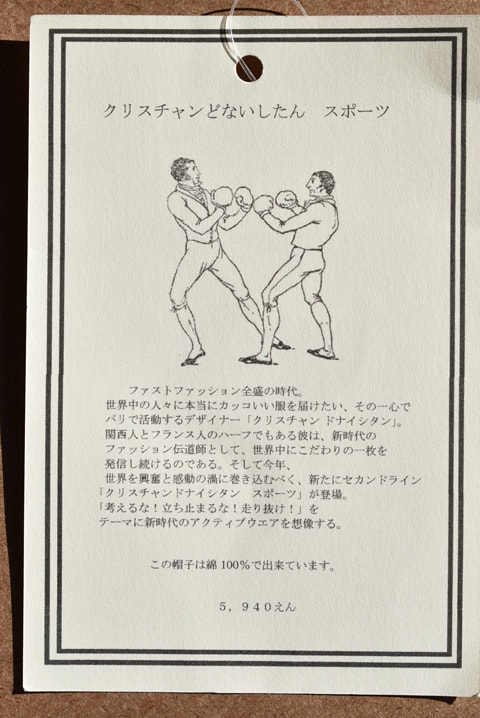 クリスチャンどないしたん　スポーツ
ファストファッション全盛の時代。
世界中の人々に本当にカッコいい服を届けたい、その一心で
パリで活動するデザイナー「クリスチャン ドナイシタン」。
関西人とフランス人のハーフでもある彼は、新時代の
ファッション伝道師として、世界中にこだわりの一枚を
発信し続けるのである。そして今年、
世界を興奮と感動の渦に巻き込むべく、新たにセカンドライン
「クリスチャンドナイシタン　スポーツ」が登場。
「考えるな！立ち止まるな！走り抜け！」を
テーマに新時代のアクティブウエアを想像する。
この帽子は綿 100％で出来ています。
５，９４０えん